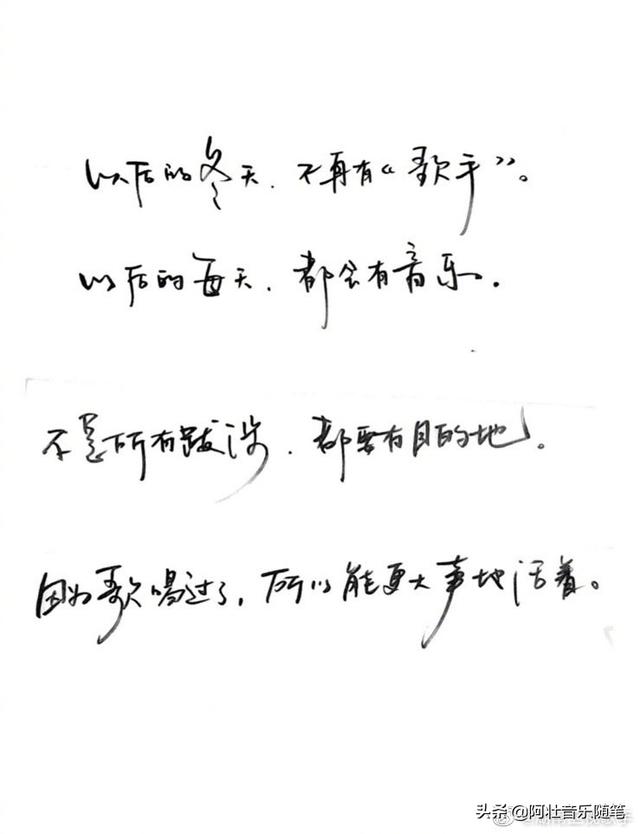 以后的冬天，不再有《歌手》。
以后的每天，都会有音乐。
不是所有跋涉，都要有目的地。
因为歌唱过了，所以能更大声地活着。
头条 @阿壮音乐随笔